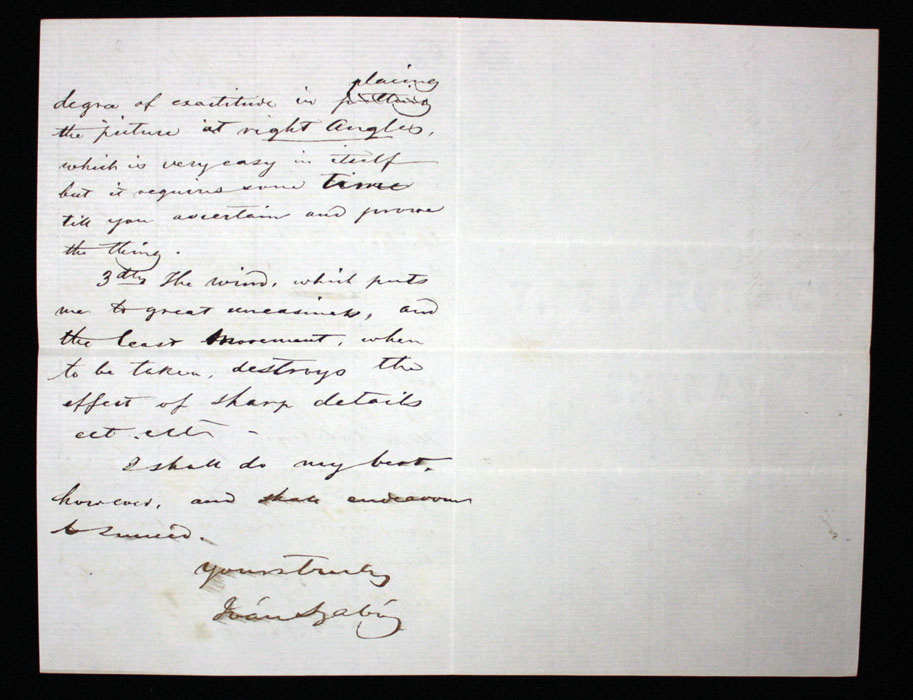 placing
degra of exactitude in putting
the picture at right Angles,
which is very easy in itself
but it requires some time
till you ascertain and prove
the thing.
3dly The wind, which puts
me to great uneasiness, and
the least Movement, when
to be taken, destroys the
effect of sharp details
ect. ect. -
I shall do my best,
however, and shall endeavour
to succeed.
Yours truly
Iván Szabó